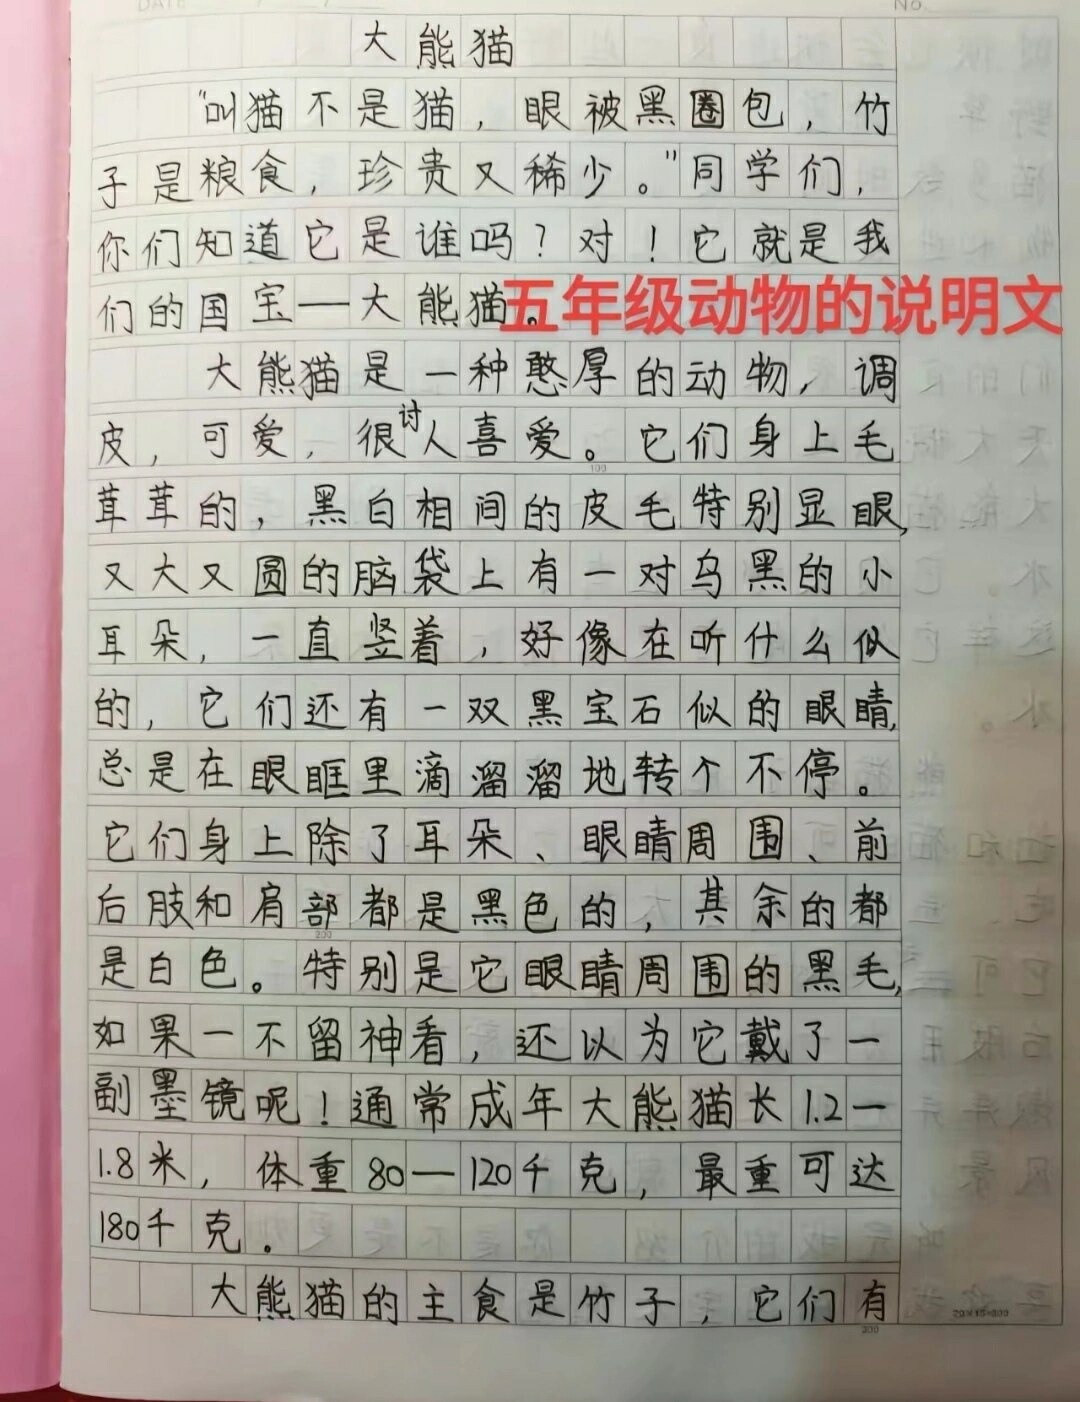 DATE
No.
大熊猫
"叫猫不是猫，眼被黑圈包，竹
子是粮食，珍贵又稀少。"同学们，
你们知道它是谁吗？对！它就是我
们的国宝——大熊猫。
五年级动物的说明文
大熊猫是一种憨厚的动物，调
皮，可爱，很讨人喜爱。它们身上毛
茸茸的，黑白相间的皮毛特别显眼，
又大又圆的脑袋上有一对乌黑的小
耳朵，一直竖着，好像在听什么似
的，它们还有一双黑宝石似的眼睛，
总是在眼眶里滴溜溜地转个不停。
它们身上除了耳朵、眼睛周围、前
后肢和肩部都是黑色的，其余的都
是白色。特别是它眼睛周围的黑毛，
如果一不留神看，还以为它戴了一
副墨镜呢！通常成年大熊猫长1.2—
1.8米，体重80—120千克，最重可达
180千克。
大熊猫的主食是竹子，它们有
100
200
300
20×15=300